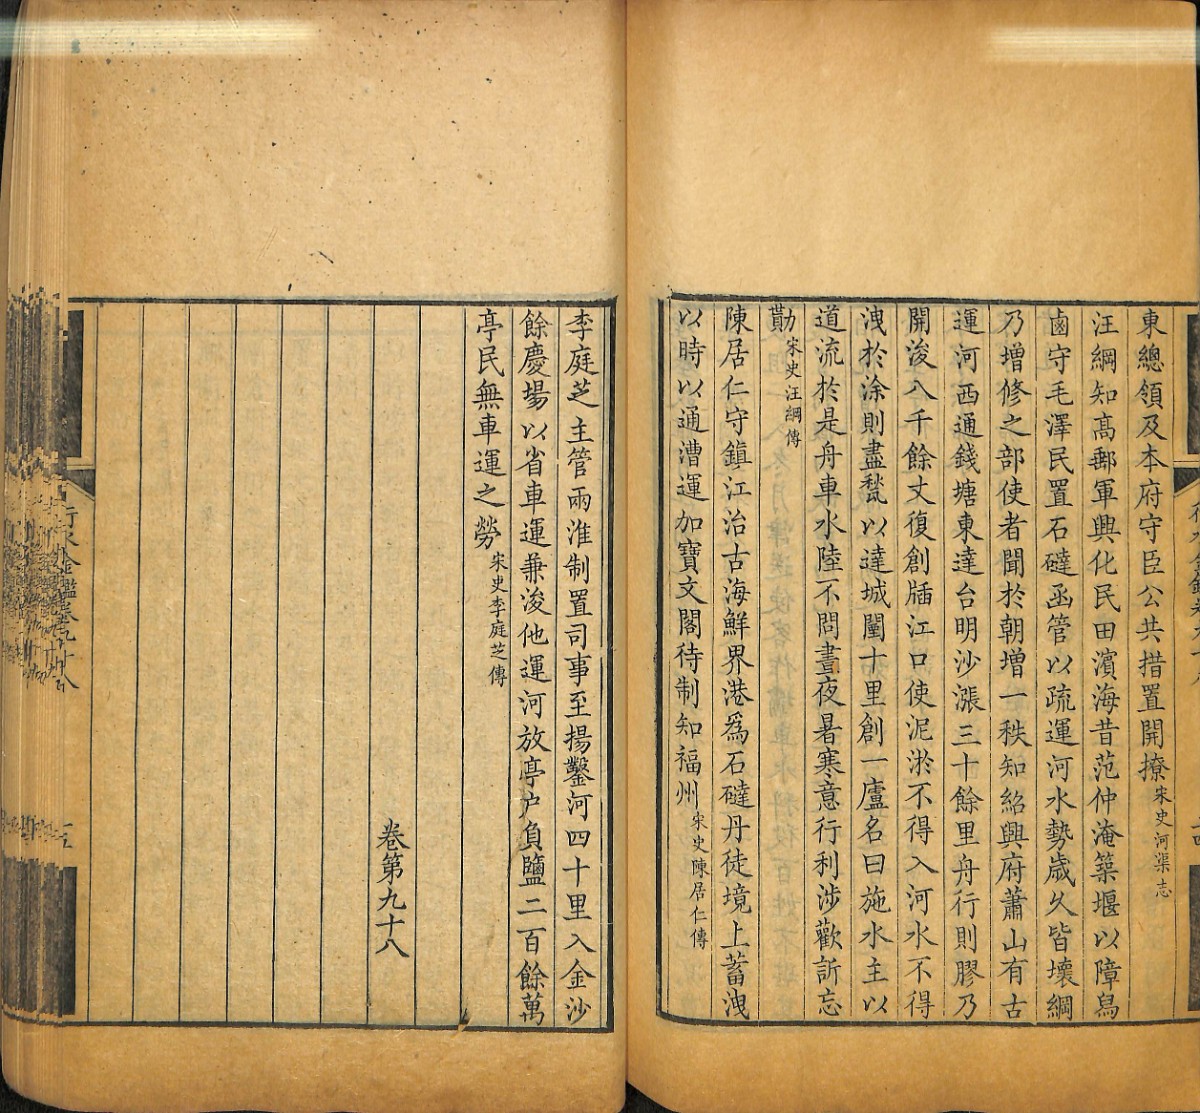 東總領及本府守臣公共措置開撩宋史河渠志
汪綱知高郵軍興化民田濱海昔范仲淹築堰以障舄
鹵守毛澤民置石䃮函管以疏運河水勢歲久皆壞綱
乃增修之部使者聞於朝增一秩知紹興府蕭山有古
運河西通錢塘東達台明沙漲三十餘里舟行則膠乃
開浚八千餘丈復創牐江口使泥淤不得入河水不得
洩於涂則盡甃以達城闉十里創一廬名曰施水主以
道流於是舟車水陸不問晝夜暑寒意行利涉歡訢忘
勩宋史汪綱傳
陳居仁守鎮江治古海鮮界港爲石䃮丹徒境上蓄洩
以時以通漕運加寶文閣待制知福州宋史陳居仁傳
李庭芝主管兩淮制置司事至揚鑿河四十里入金沙
餘慶場以省車運兼浚他運河放亭户負鹽二百餘萬
亭民無車運之勞宋史李庭芝傳
卷第九十八
行水金鑑卷九十八